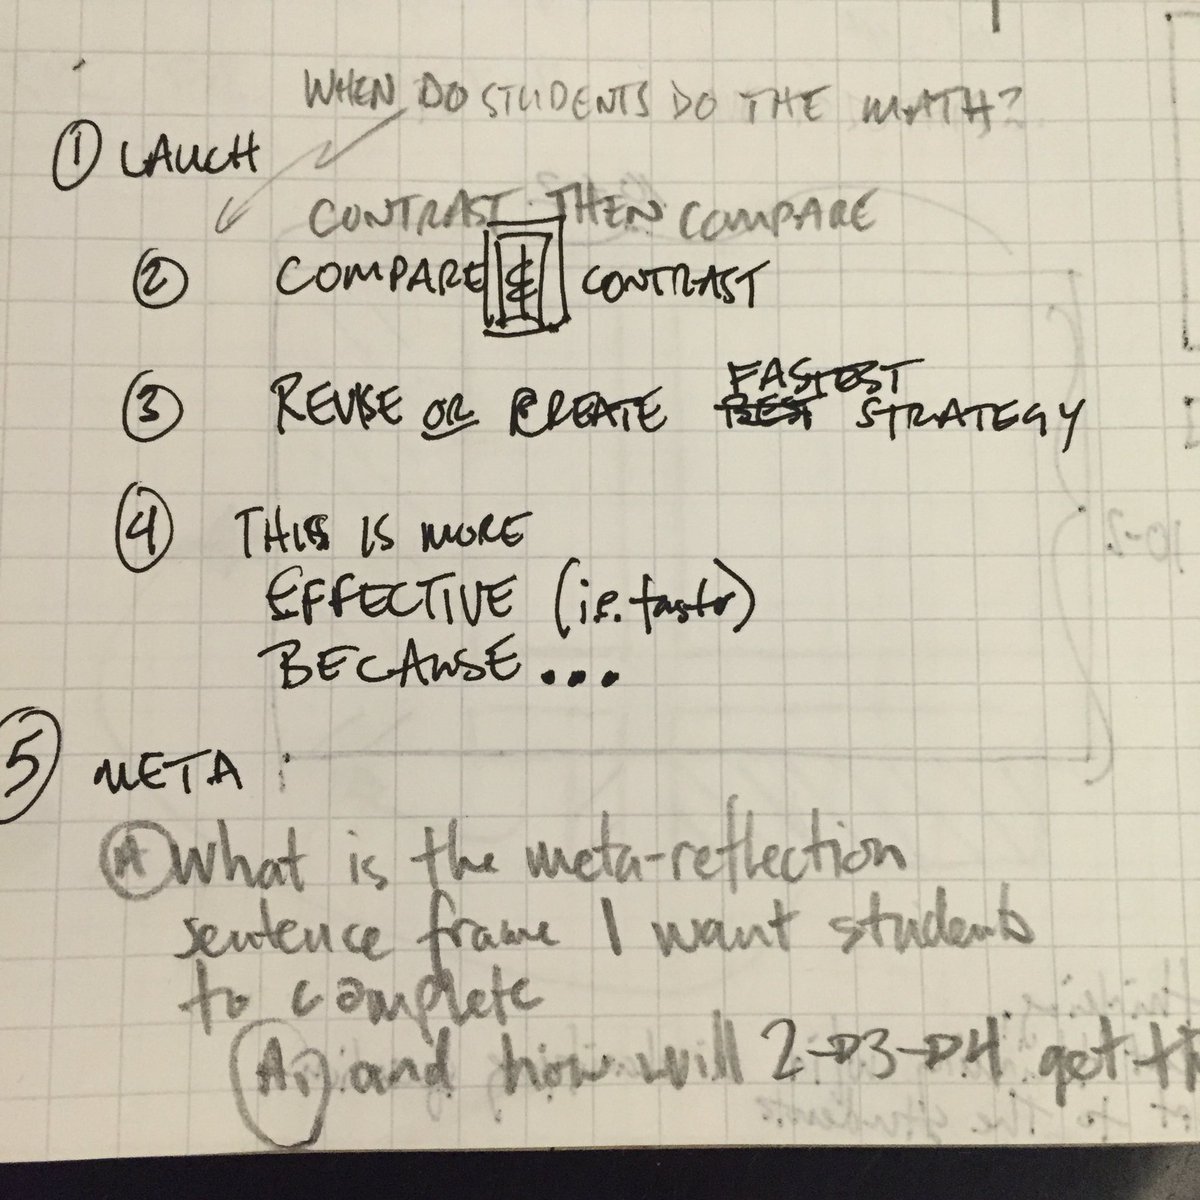 WHEN DO STUDENTS DO THE MATH?
① LAUCH
CONTRAST THEN COMPARE
② COMPARE & CONTRAST
③ REVISE OR CREATE BEST FASTEST STRATEGY
④ THIS IS MORE
EFFECTIVE (i.e. faster)
BECAUSE...
5 META
A What is the meta-reflection
sentence frame I want students
to complete
A1 and how will 2→3→4 get